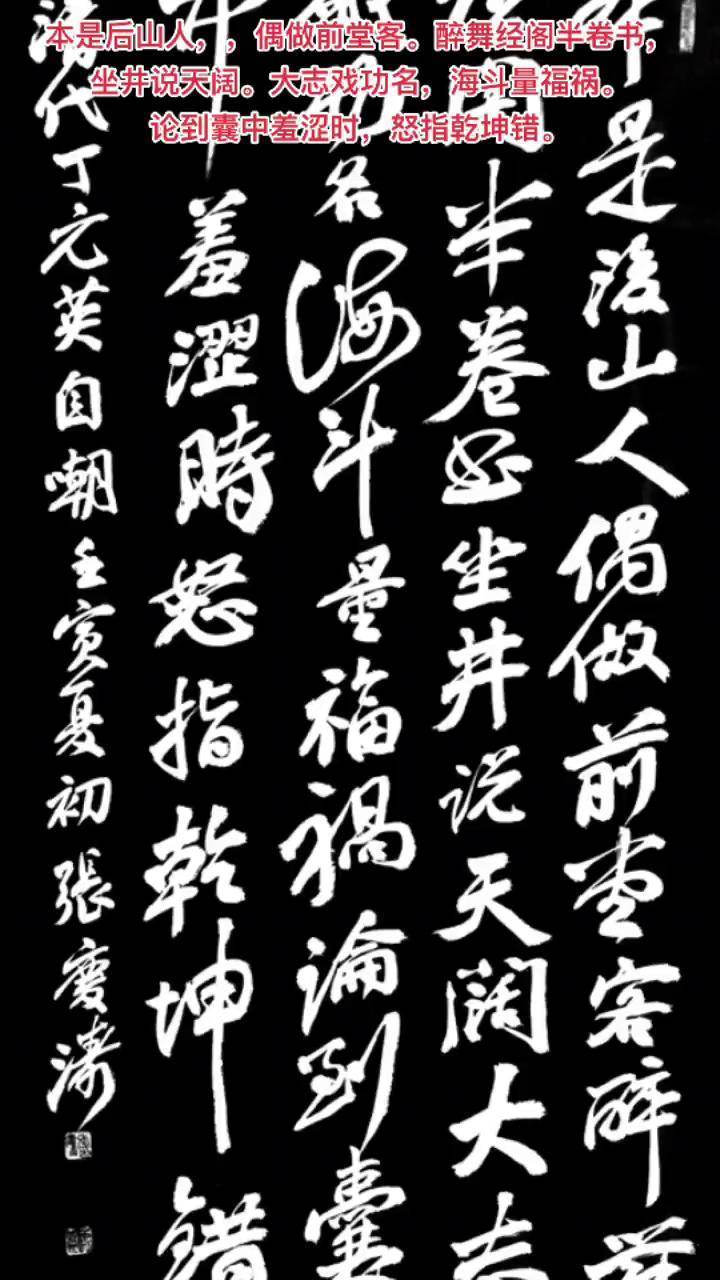 本是后山人，，偶做前堂客。醉舞经阁半卷书，
坐井说天阔。大志戏功名，海斗量福祸。
论到囊中羞涩时，怒指乾坤错。
本是後山人偶做前堂客醉舞
閣半卷书坐井说天阔大志
功名海斗量福禍論到囊
中羞澀時怒指乾坤錯
清代丁元英自嘲壬寅夏初張慶濤